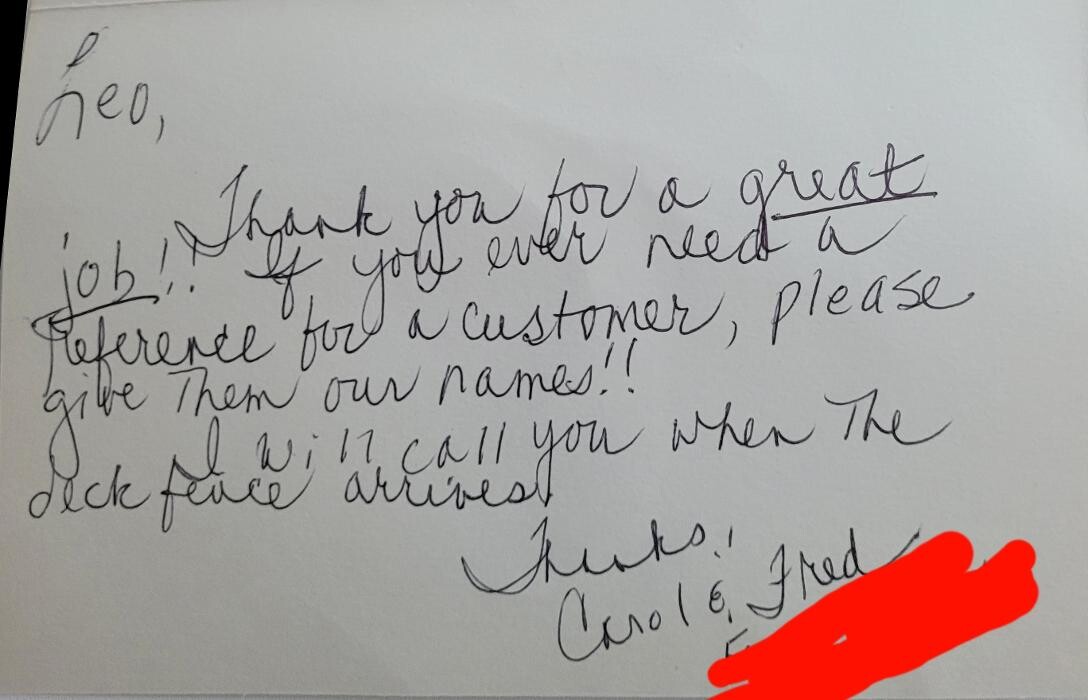 Leo,
Thank you for a great
job!! If you ever need a
reference for a customer, please
give Them our names!!
I will call you when The
deck fence arrives!
Thanks!
Carol & Fred